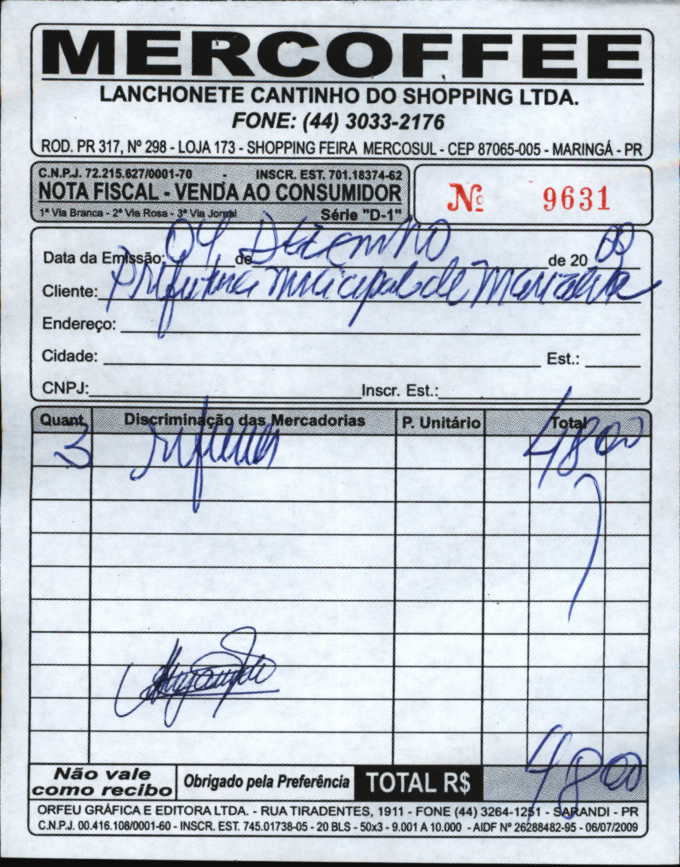 MERCOFFEE
LANCHONETE CANTINHO DO SHOPPING LTDA.
FONE: (44) 3033-2176
ROD. PR 317, Nº 298 - LOJA 173 - SHOPPING FEIRA MERCOSUL - CEP 87065-005 - MARINGÁ - PR
C.N.P.J. 72.215.627/0001-70 - INSCR. EST. 701.18374-62
NOTA FISCAL - VENDA AO CONSUMIDOR
1ª Via Branca - 2ª Via Rosa - 3ª Via Jornal Série "D-1"
Nº 9631
Data da Emissão: 04 de Dezembro de 20
Cliente: Prefeitura Municipal de
Endereço:
Cidade: Est.:
CNPJ: Inscr. Est.:
Quant. Discriminação das Mercadorias P. Unitário Total
3 48 00
Não vale como recibo
Obrigado pela Preferência
TOTAL R$ 48 00
ORFEU GRÁFICA E EDITORA LTDA. - RUA TIRADENTES, 1911 - FONE (44) 3264-1251 - SARANDI - PR
C.N.P.J. 00.416.108/0001-60 - INSCR. EST. 745.01738-05 - 20 BLS - 50x3 - 9.001 A 10.000 - AIDF Nº 26288482-95 - 06/07/2009